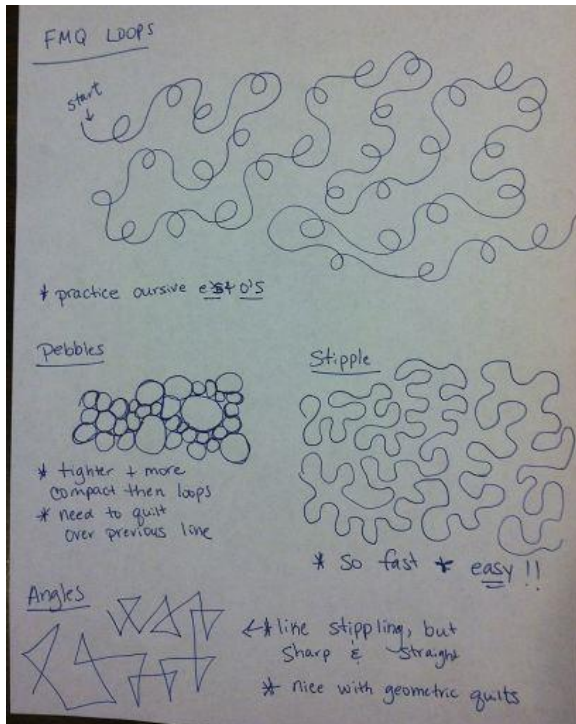 FMQ LOOPS
start
* practice cursive e's + o's
Pebbles
* tighter + more
compact then loops
* need to quilt
over previous line
Stipple
* So fast * easy !!
Angles
* like stippling, but
sharp & straight
* nice with geometric quilts